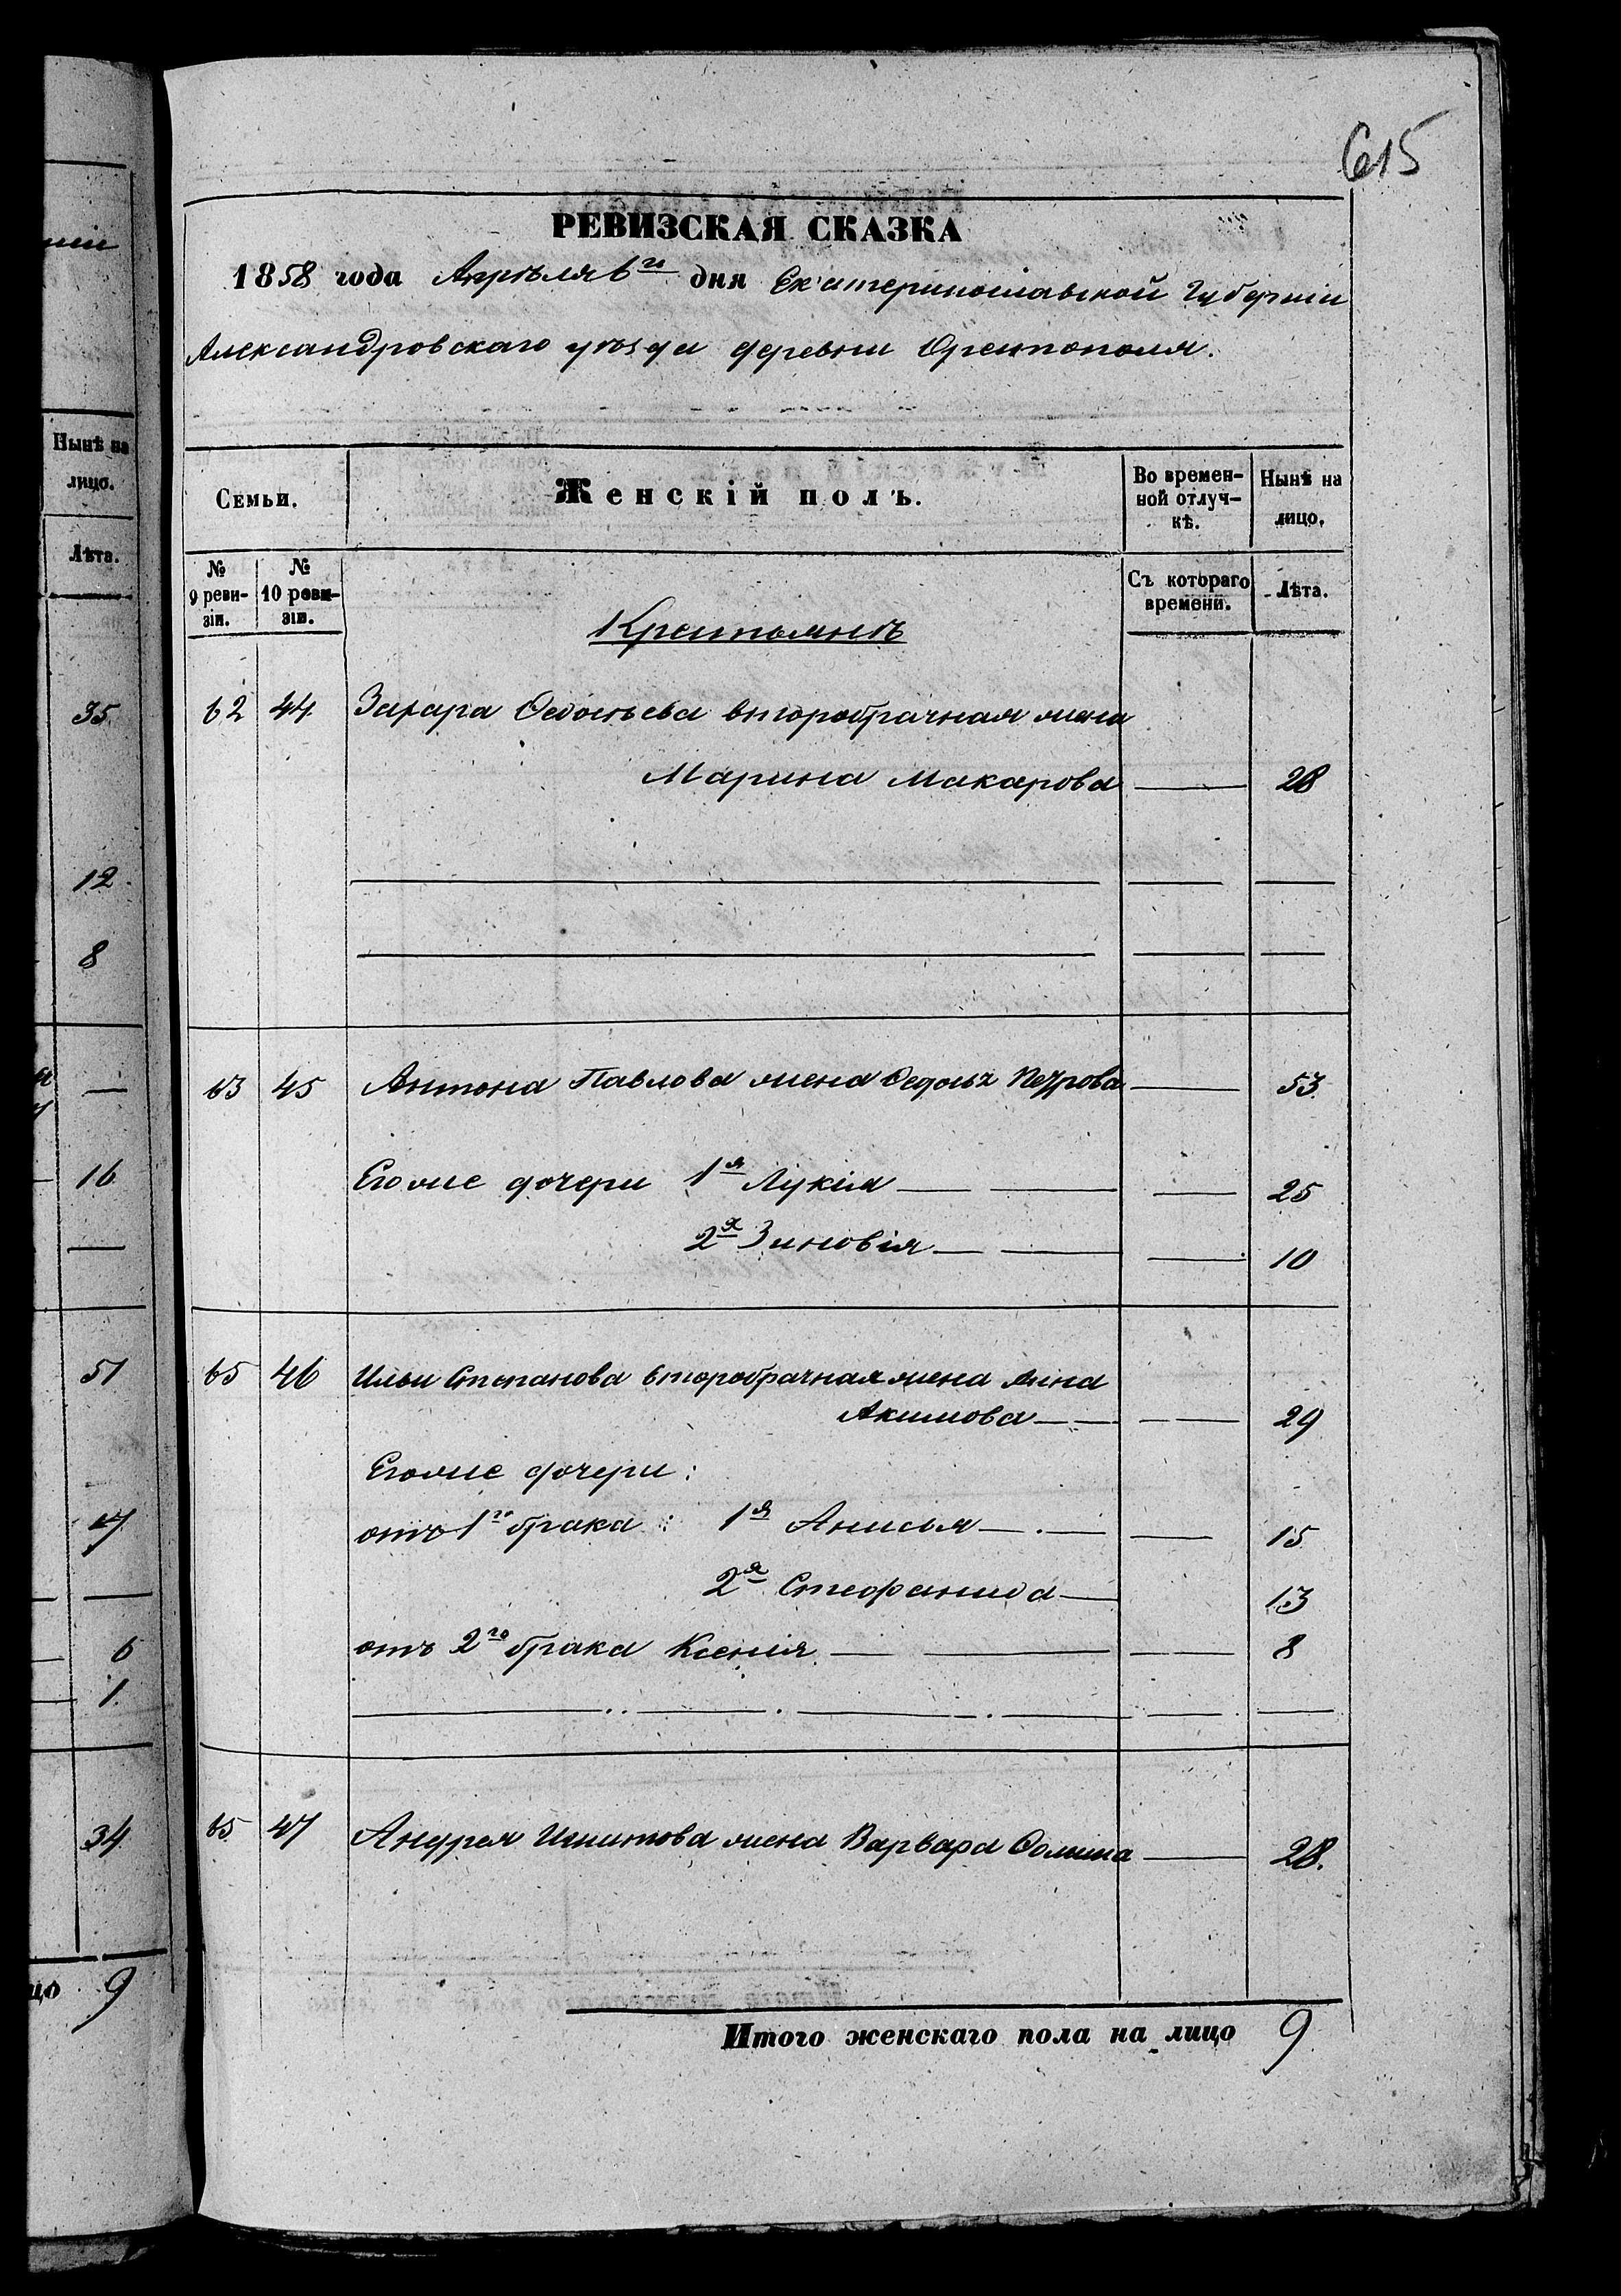 615
РЕВИЗСКАЯ СКАЗКА
1858 года Апрѣля 6го дня Екатеринославской Губерніи
Александровскаго уѣзда деревни Орестополя.
Семьи. Женскій полъ. Во времен-ной отлуч-кѣ. Нынѣ на лицо.
№ 9 реви-зіи. № 10 реви-зіи. Съ котораго времени. Лѣта.
Крестьянъ
62 44 Захара Ѳедосѣева второбрачная жена
Марина Макарова — 28
63 45 Антона Павлова жена Петрова — 53
Егоже дочери 1я Лукія — 25
2я Зиновія — 10
65 46 Ильи Степанова второбрачная жена Анна
Акимова — 29
Егоже дочери:
отъ 1го брака: 1я Анисья — 15
2я Стефанида — 13
отъ 2го брака Ксенія — 8
65 47 Андрея жена Варвара Ѳомина — 28.
Итого женскаго пола на лицо 9
Нынѣ на
лицо.
Лѣта.
35
12
8
16
51
6
1.
34
9